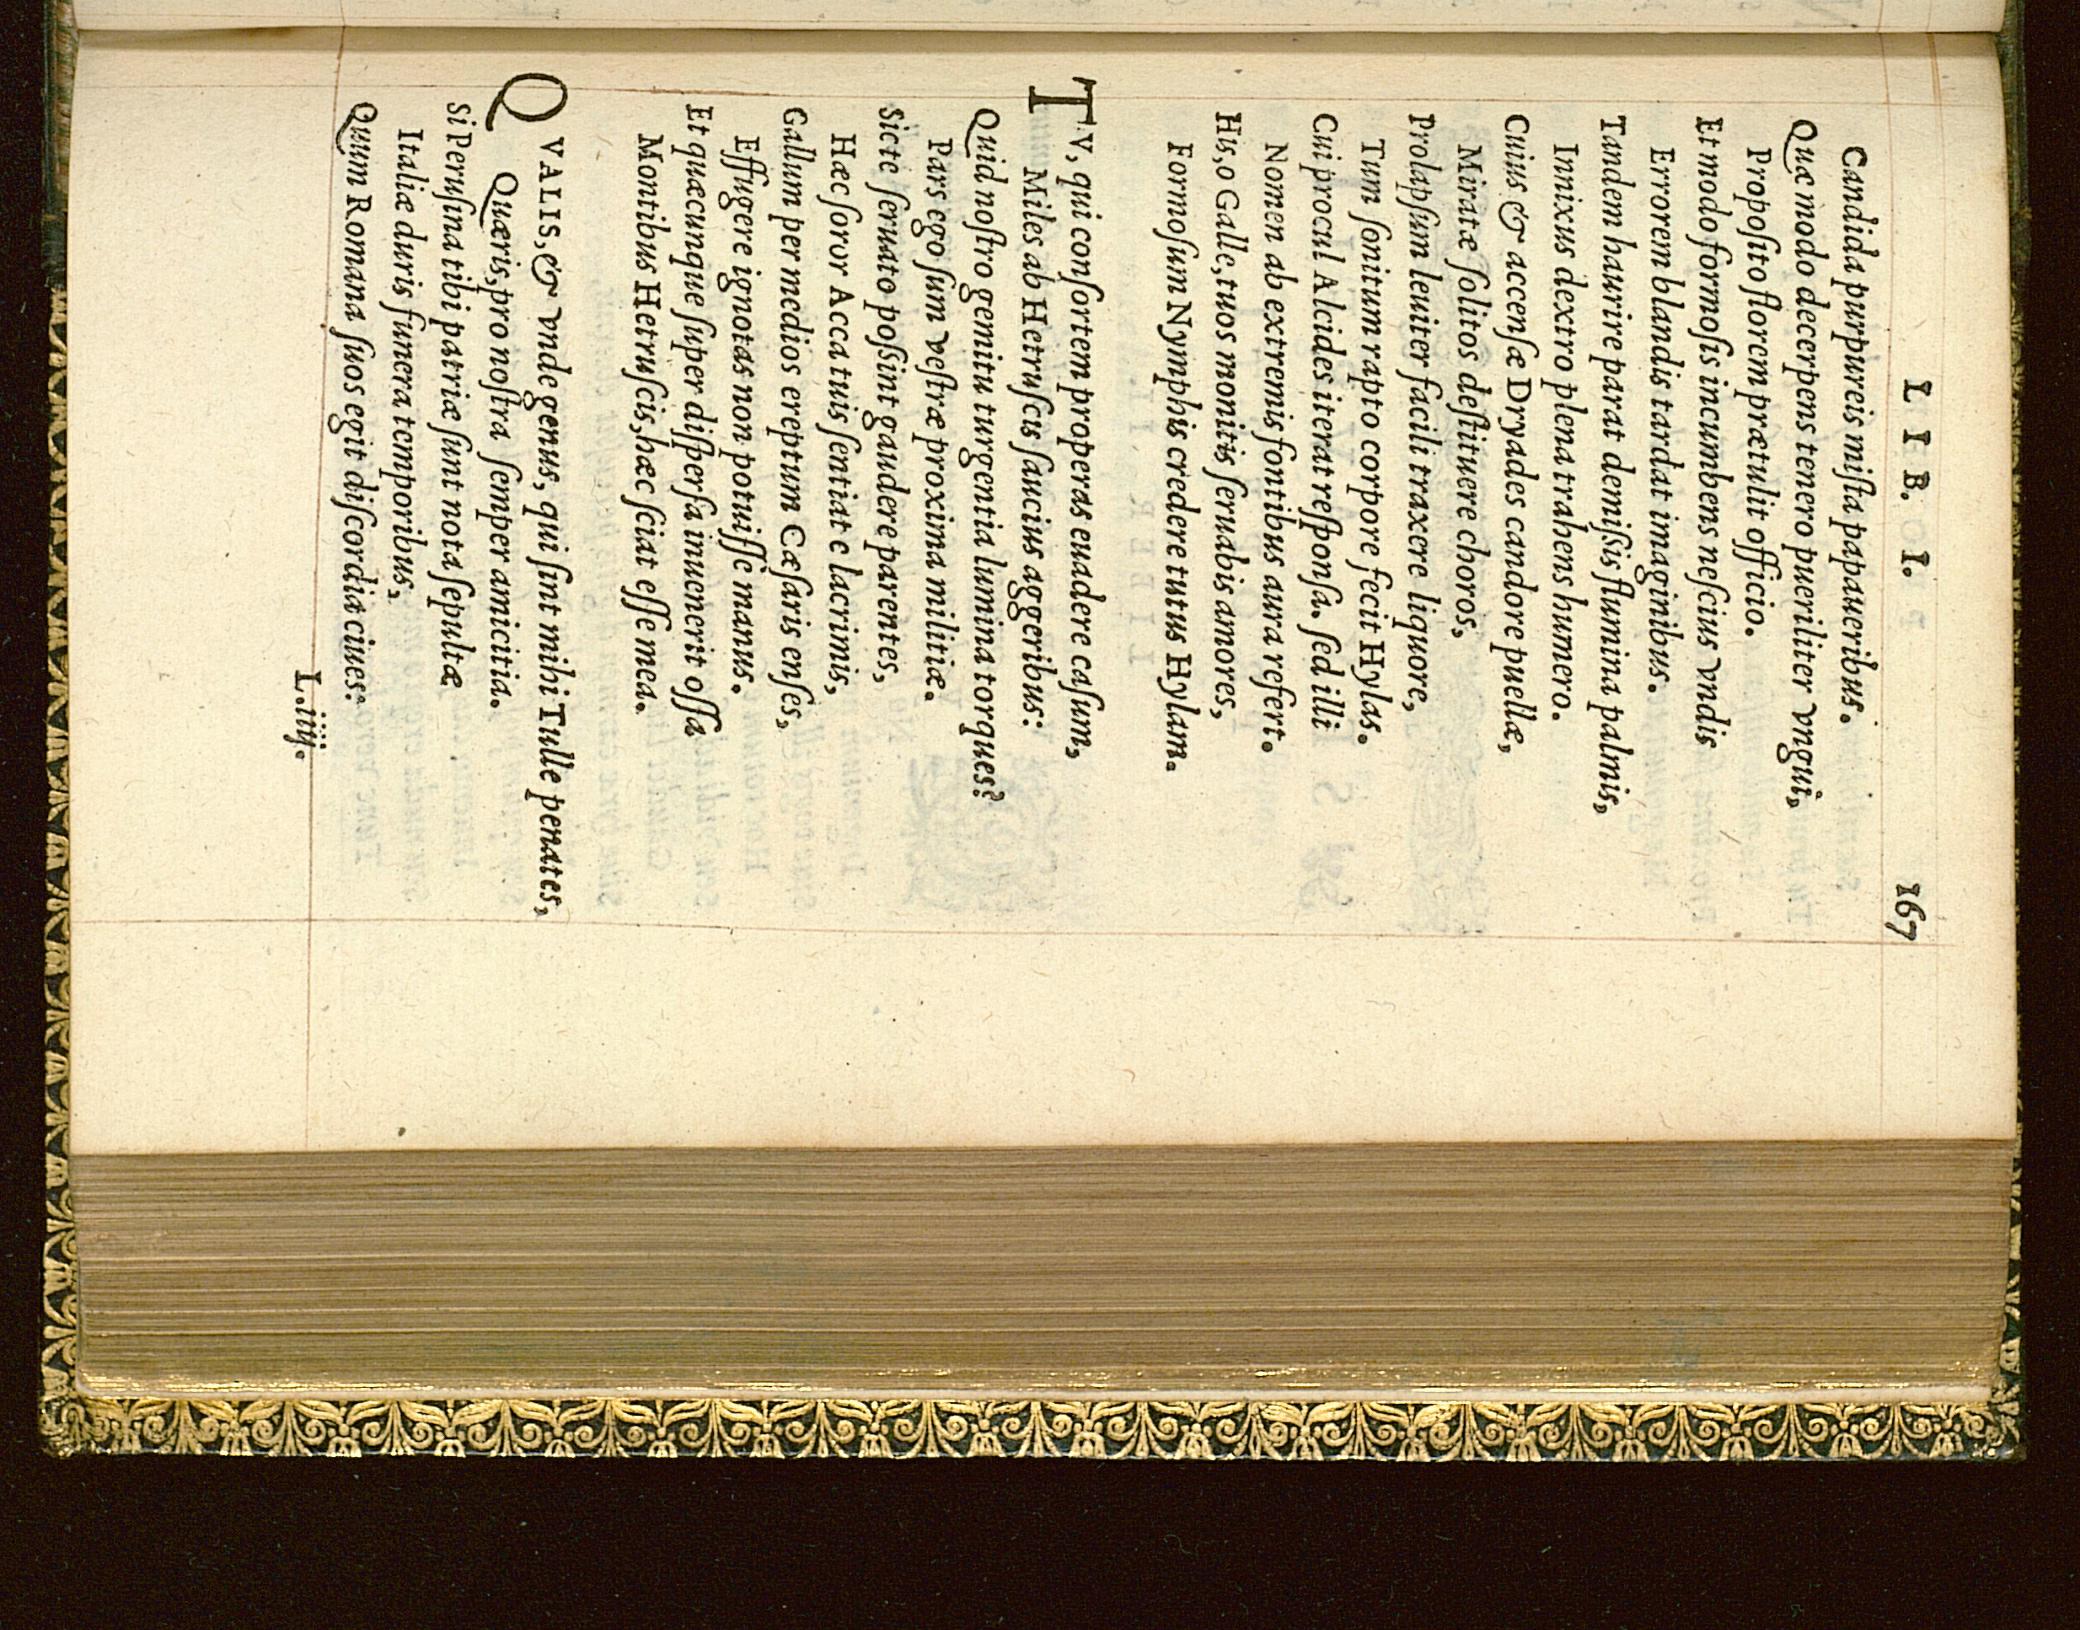 LIB. I. 167
Candida purpureis miſta papaueribus.
Quæ modo decerpens tenero pueriliter vngui,
Propoſito florem prætulit officio.
Et modo formoſis incumbens neſcius vndis
Errorem blandis tardat imaginibus.
Tandem haurire parat demiſsis flumina palmis,
Innixus dextro plena trahens humero.
Cuius & accenſæ Dryades candore puellæ,
Miratæ ſolitos deſtituere choros,
Prolapſum leuiter facili traxere liquore,
Tum ſonitum rapto corpore fecit Hylas.
Cui procul Alcides iterat reſponſa. ſed illi
Nomen ab extremis fontibus aura refert.
His, o Galle, tuos monitis ſeruabis amores,
Formoſum Nymphis credere tutus Hylam.
TV, qui conſortem properas euadere caſum,
Miles ab Hetruſcis ſaucius aggeribus:
Quid noſtro gemitu turgentia lumina torques?
Pars ego ſum veſtræ proxima militiæ.
Sic te ſeruato poſsint gaudere parentes,
Hæc ſoror Acca tuis ſentiat e lacrimis,
Gallum per medios ereptum Cæſaris enſes,
Effugere ignotas non potuiſſe manus.
Et quæcunque ſuper diſperſa inuenerit oſſa
Montibus Hetruſcis, hæc ſciat eſſe mea.
QVALIS, & vnde genus, qui ſint mihi Tulle penates,
Quæris, pro noſtra ſemper amicitia.
Si Peruſina tibi patriæ ſunt nota ſepultæ
Italiæ duris funera temporibus,
Quum Romana ſuos egit diſcordia ciues:
L.iiij.